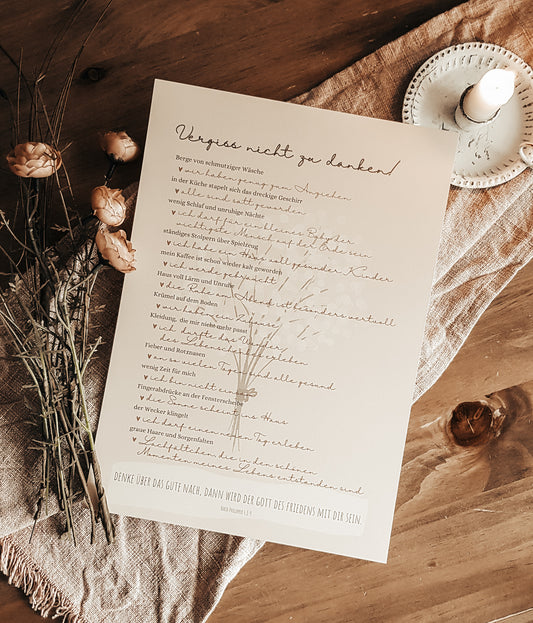 Vergiss nicht zu danken!
Berge von schmutziger Wäsche
♥ wir haben genug zum Anziehen
in der Küche stapelt sich das dreckige Geschirr
♥ alle sind satt geworden
wenig Schlaf und unruhige Nächte
♥ ich darf für ein kleines Baby der
wichtigste Mensch auf der Erde sein
ständiges Stolpern über Spielzeug
♥ ich habe ein Haus voll gesunder Kinder
mein Kaffee ist schon wieder kalt geworden
♥ ich werde gebraucht
Haus voll Lärm und Unruhe
♥ die Ruhe am Abend ist besonders wertvoll
Krümel auf dem Boden
♥ wir haben ein Zuhause
Kleidung, die mir nicht mehr passt
♥ ich durfte das Wunder
des Lebens erleben
Fieber und Rotznasen
♥ an so vielen Tagen sind alle gesund
wenig Zeit für mich
♥ ich bin nicht einsam
Fingerabdrücke an der Fensterscheibe
♥ die Sonne scheint ins Haus
der Wecker klingelt
♥ ich darf einen neuen Tag erleben
graue Haare und Sorgenfalten
♥ Lachfältchen die in den schönen
Momenten meines Lebens entstanden sind
DENKE ÜBER DAS GUTE NACH, DANN WIRD DER GOTT DES FRIEDENS MIT DIR SEIN.
NACH PHILIPPER